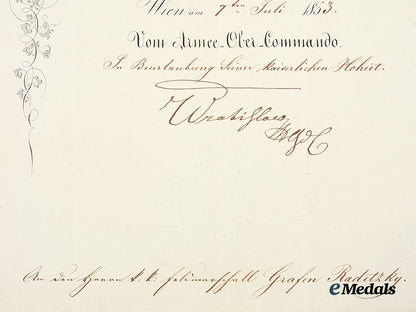 Wien am 7ten Juli 1853.
Vom Armee-Ober-Commando.
In Beurlaubung Seiner kaiserlichen Hoheit.
Wratislaw
GdC
An den Herrn k. k. Feldmarschall Grafen Radetzky.
eMedals